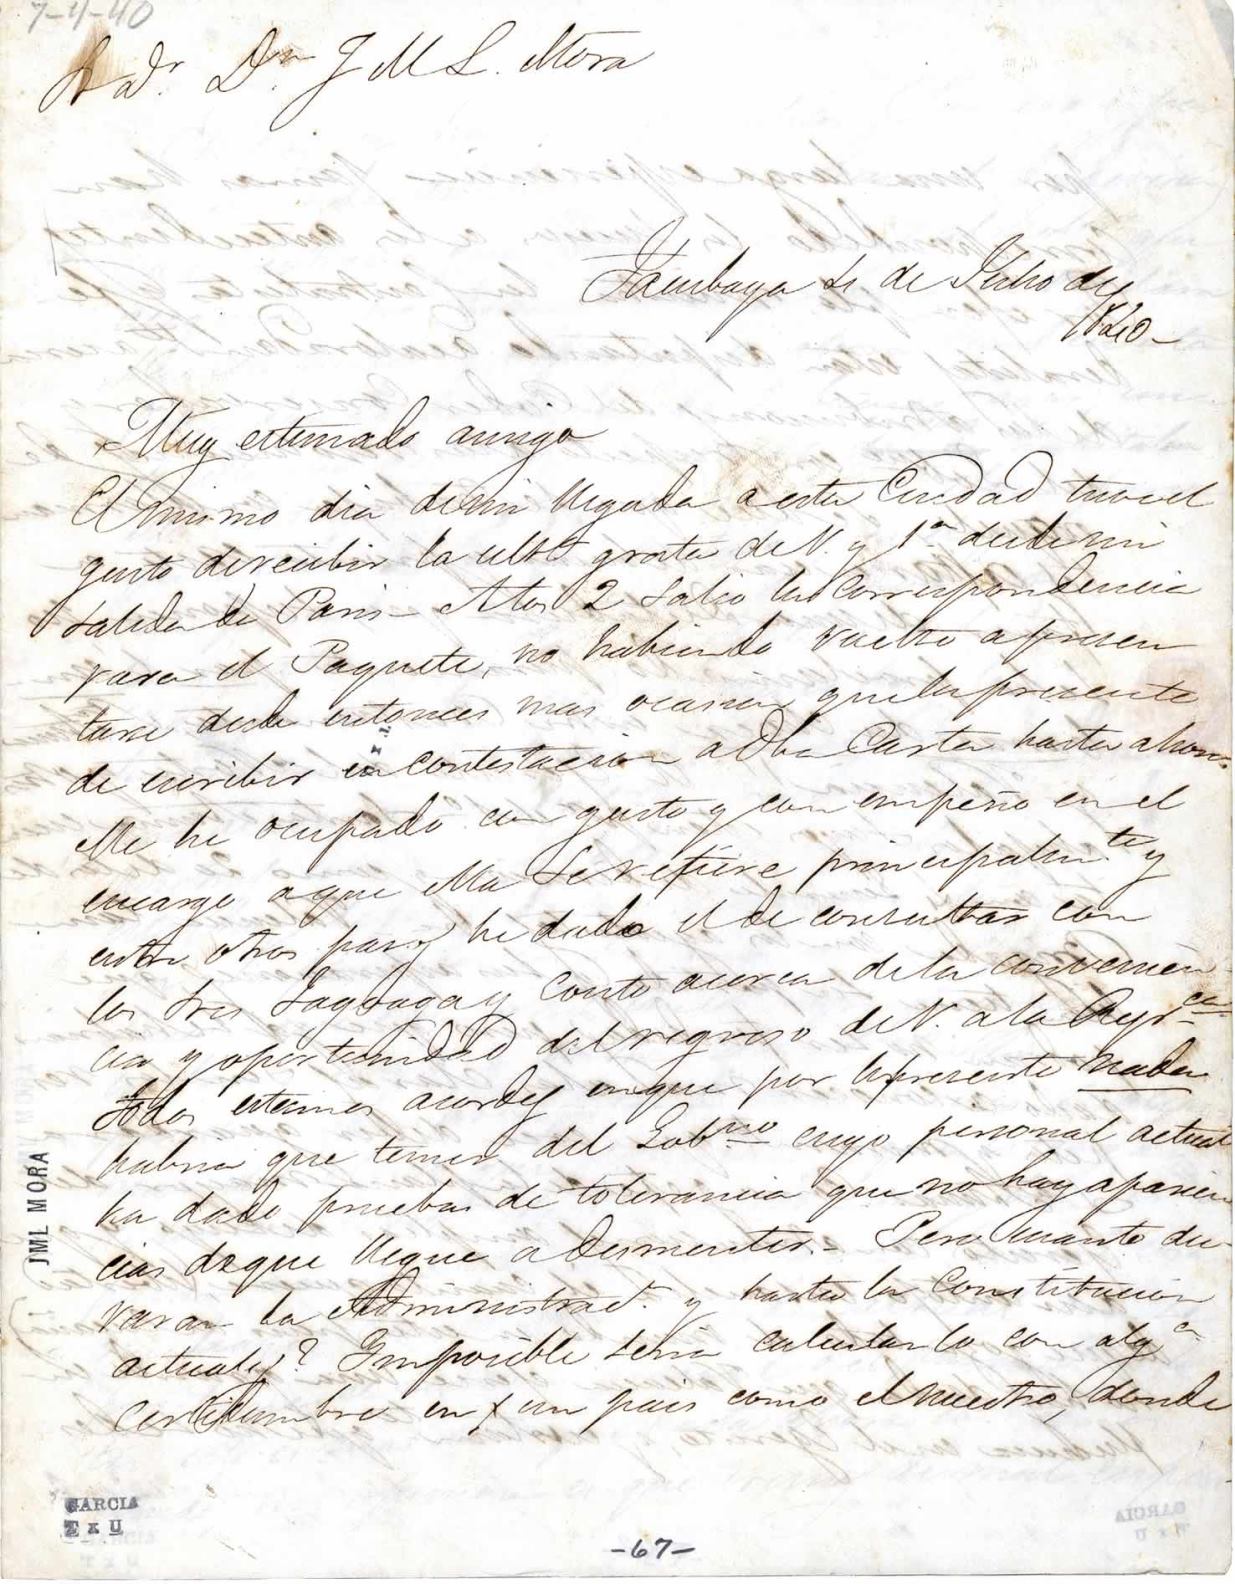 7-4-40
Sr Dr. Dn J M L. Mora
Tacubaya 4 de Julio de
1840-
Muy estimado amigo
El mismo dia de mi llegada a esta Ciudad tuve el
gusto de recibir la ulta grata de V. y 1a desde mi
salida de Paris- A los 2 salio la correspondencia
para el Paquete, no habiendo vuelto a presen
tarse desde entonces mas ocasion que la presente
de escribir en contestacion a dha Carta hasta ahora.
Me he ocupado con gusto y con empeño en el
encargo a que ella se refiere principalmte y
entre otros pasos he dado el de consultar con
los Sres Fagoaga y Couto acerca de la convenien
cia y oportunidad del regreso de V. a la Repca
Todos estamos acordes en que por lo presente nada
habria que temer del Gobno cuyo personal actual
ha dado pruebas de tolerancia que no hay aparien
cias de que llegue a desmentir.- Pero cuanto du
raran la Administrad. y hasta la Constitucion
actuales? Imposible seria calcularlo con alga
certidumbre en un pais como el nuestro, donde
JML MORA
GARCIA
T x U
-67-